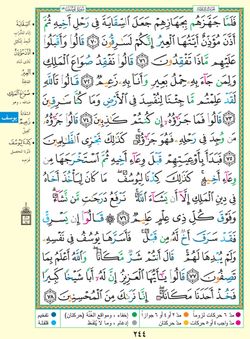 فَلَمَّا جَهَّزَهُم بِجَهَازِهِمْ جَعَلَ ٱلسِّقَايَةَ فِى رَحْلِ أَخِيهِ ثُمَّ
أَذَّنَ مُؤَذِّنٌ أَيَّتُهَا ٱلْعِيرُ إِنَّكُمْ لَسَـٰرِقُونَ ٧٠ قَالُوا۟ وَأَقْبَلُوا۟
عَلَيْهِم مَّاذَا تَفْقِدُونَ ٧١ قَالُوا۟ نَفْقِدُ صُوَاعَ ٱلْمَلِكِ
وَلِمَن جَآءَ بِهِۦ حِمْلُ بَعِيرٍ وَأَنَا۠ بِهِۦ زَعِيمٌ ٧٢ قَالُوا۟ تَٱللَّهِ
لَقَدْ عَلِمْتُم مَّا جِئْنَا لِنُفْسِدَ فِى ٱلْأَرْضِ وَمَا كُنَّا سَـٰرِقِينَ
٧٣ قَالُوا۟ فَمَا جَزَٰٓؤُهُۥٓ إِن كُنتُمْ كَـٰذِبِينَ ٧٤ قَالُوا۟ جَزَٰٓؤُهُۥ
مَن وُجِدَ فِى رَحْلِهِۦ فَهُوَ جَزَٰٓؤُهُۥ كَذَٰلِكَ نَجْزِى ٱلظَّـٰلِمِينَ
٧٥ فَبَدَأَ بِأَوْعِيَتِهِمْ قَبْلَ وِعَآءِ أَخِيهِ ثُمَّ ٱسْتَخْرَجَهَا مِن
وِعَآءِ أَخِيهِ كَذَٰلِكَ كِدْنَا لِيُوسُفَ مَا كَانَ لِيَأْخُذَ أَخَاهُ
فِى دِينِ ٱلْمَلِكِ إِلَّآ أَن يَشَآءَ ٱللَّهُ نَرْفَعُ دَرَجَـٰتٍ مَّن نَّشَآءُ
وَفَوْقَ كُلِّ ذِى عِلْمٍ عَلِيمٌ ٧٦ قَالُوٓا۟ إِن يَسْرِقْ
فَقَدْ سَرَقَ أَخٌ لَّهُۥ مِن قَبْلُ فَأَسَرَّهَا يُوسُفُ فِى نَفْسِهِۦ
وَلَمْ يُبْدِهَا لَهُمْ قَالَ أَنتُمْ شَرٌّ مَّكَانًا وَٱللَّهُ أَعْلَمُ بِمَا
تَصِفُونَ ٧٧ قَالُوا۟ يَـٰٓأَيُّهَا ٱلْعَزِيزُ إِنَّ لَهُۥٓ أَبًا شَيْخًا كَبِيرًا
فَخُذْ أَحَدَنَا مَكَانَهُۥٓ إِنَّا نَرَىٰكَ مِنَ ٱلْمُحْسِنِينَ ٧٨
يوسف
٢٤٤